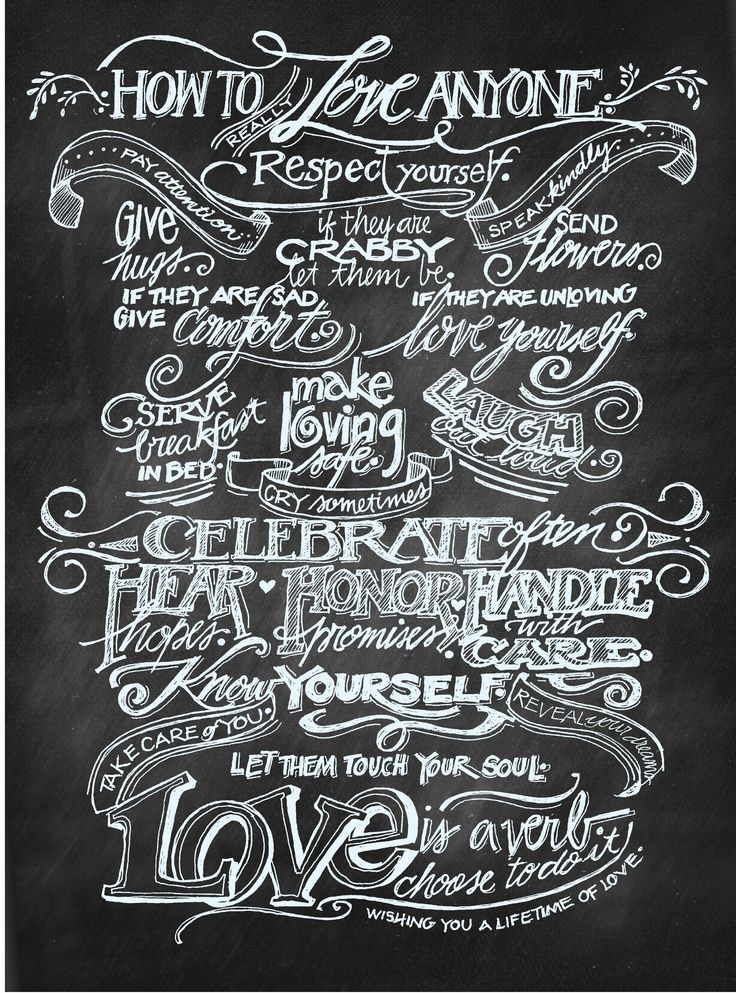 HOW TO REALLY Love ANYONE
Respect yourself.
PAY attention...
SPEAK kindly
GIVE hugs.
if they are
CRABBY
let them be.
SEND
Flowers.
IF THEY ARE SAD
GIVE comfort.
IF THEY ARE UNLOVING
love yourself.
SERVE
breakfast
IN BED.
make
loving
safe.
LAUGH
out loud.
CRY sometimes
CELEBRATE often
HEAR
hopes.
HONOR
promises.
HANDLE
with
CARE.
Know YOURSELF.
TAKE CARE of YOU.
REVEAL your dreams
LET THEM TOUCH YOUR SOUL.
LOVe is a verb
choose to do it
WISHING YOU A LIFETIME OF LOVE.